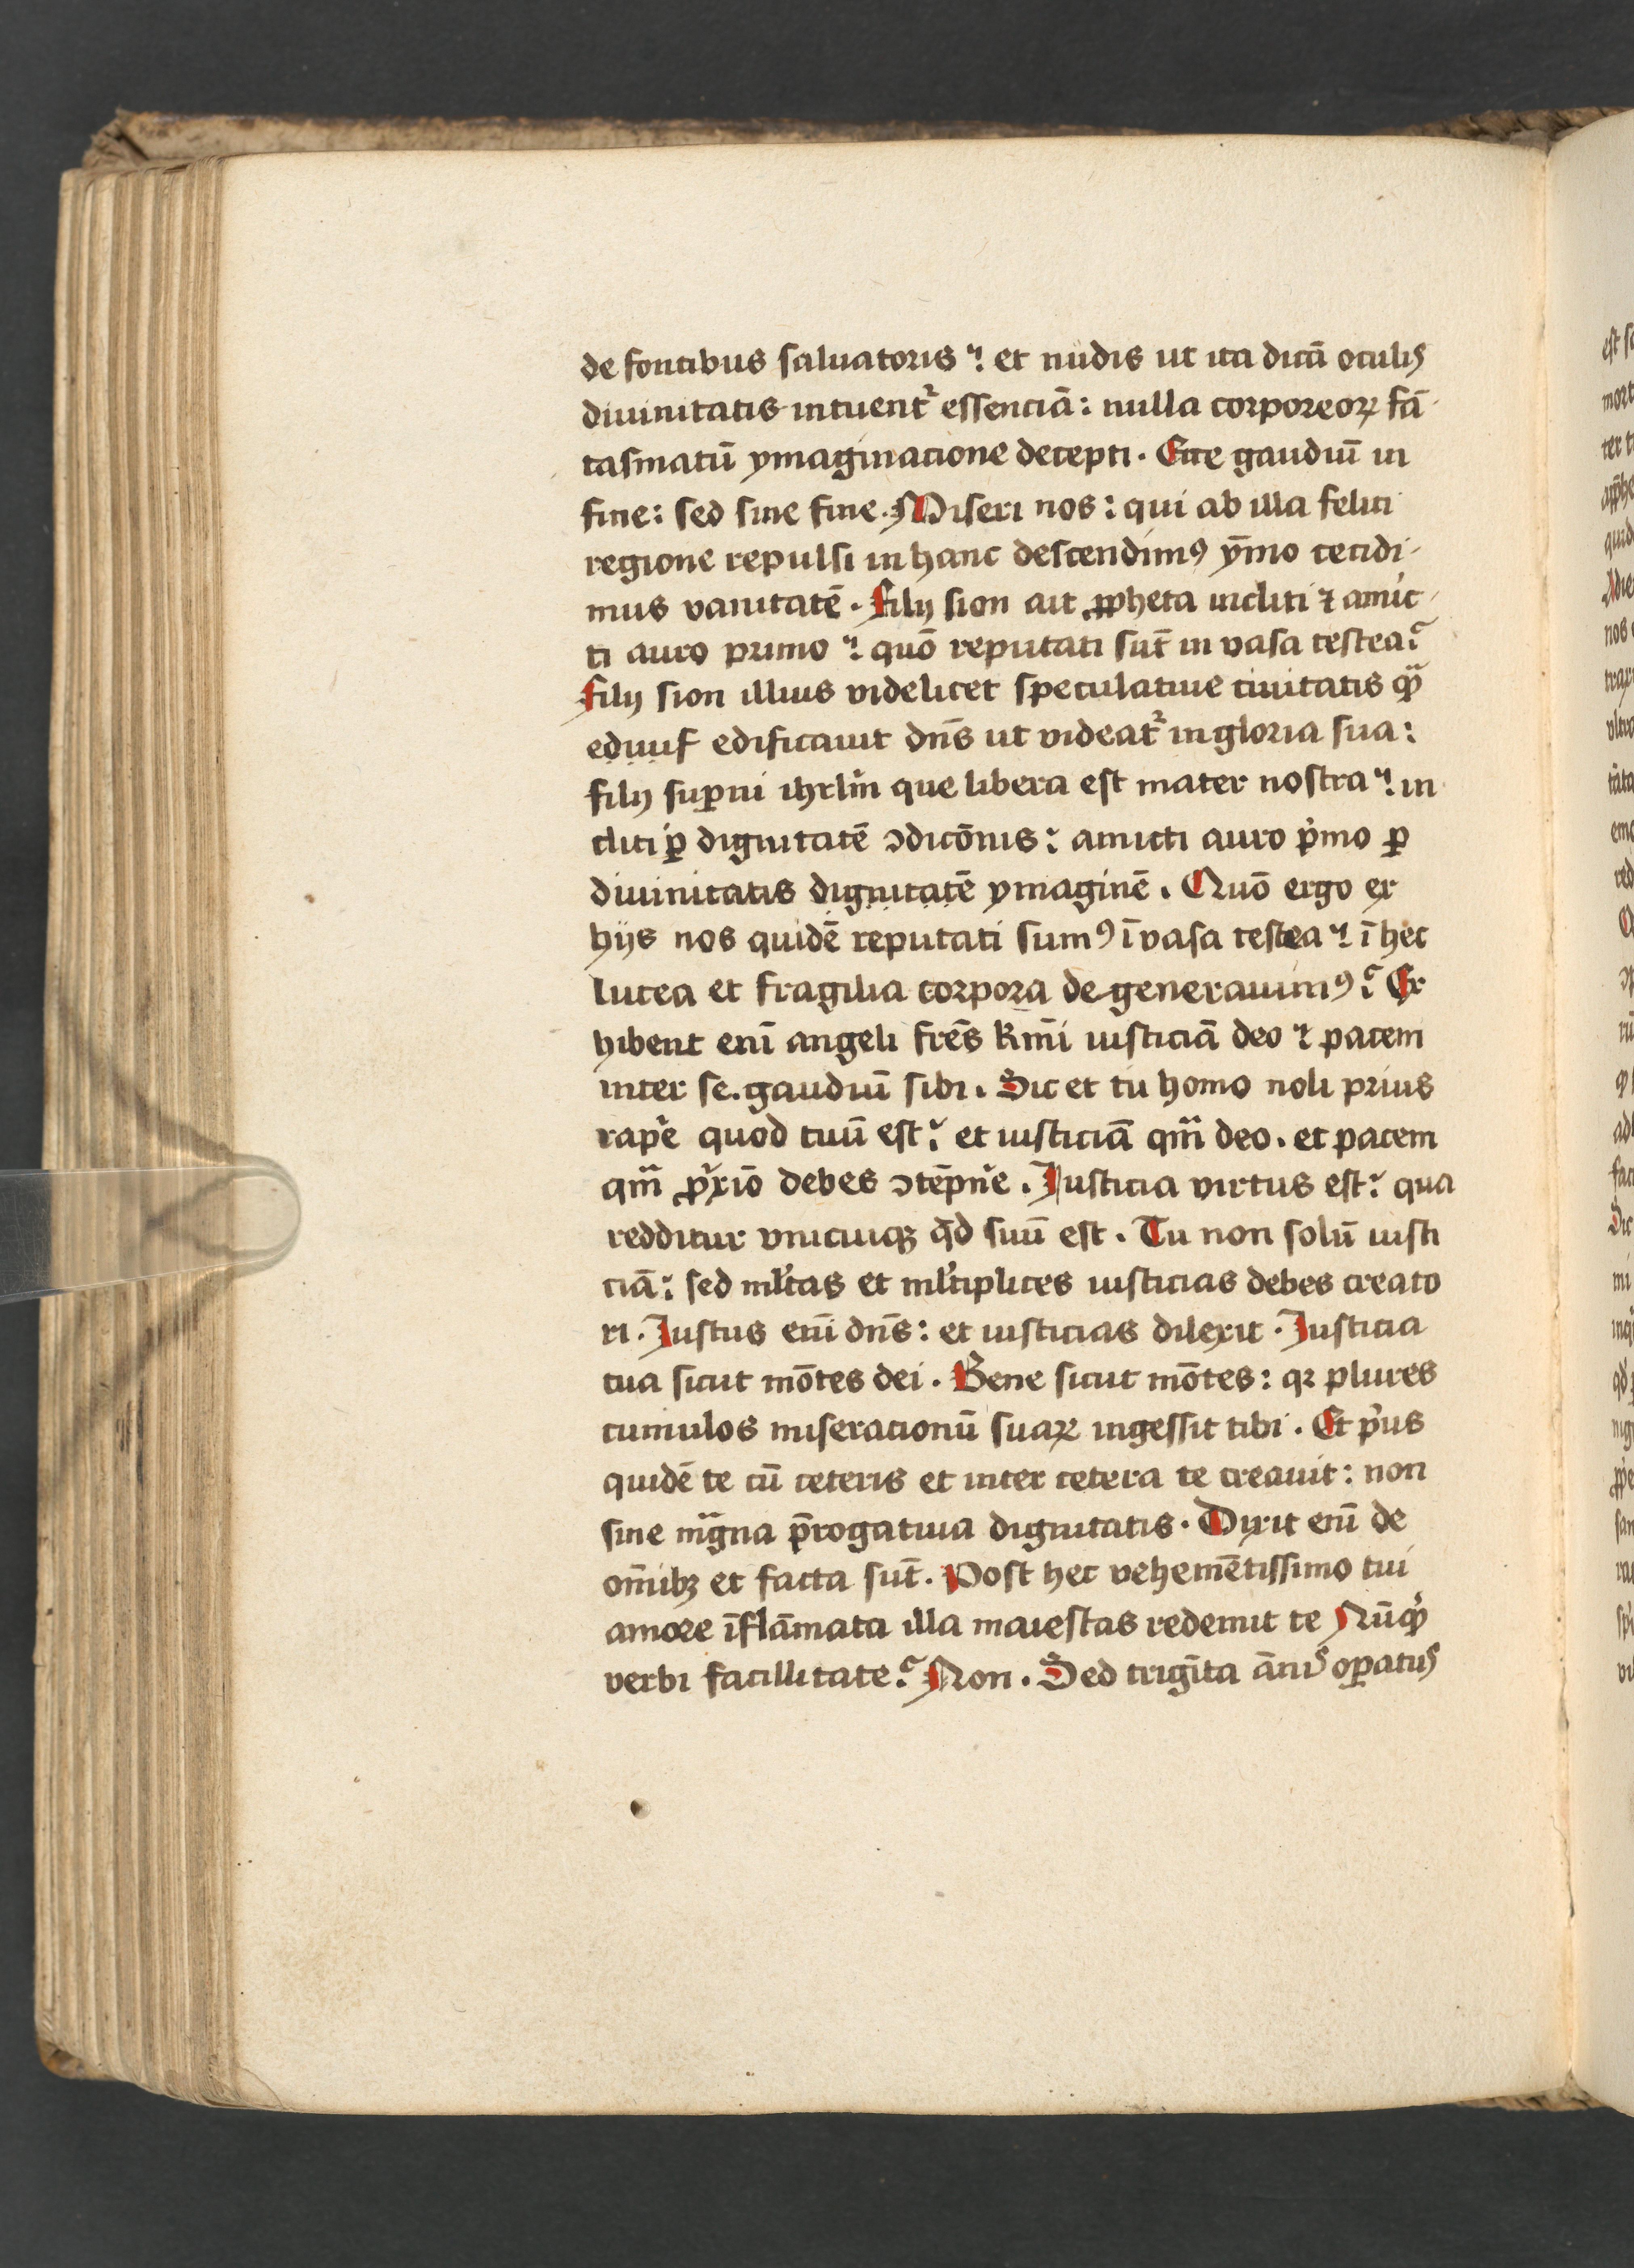 de fontibus saluatoris : et nudis ut ita dicā oculis
diuinitatis intuent᷑ essenciā : nulla corporeoꝝ fā
tasmatū ymaginacione decepti . Ecce gaudiū in
fine : sed sine fine . Miseri nos : qui ab illa felici
regione repulsi in hanc descendimꝰ ȳmo cecidi-
mus vanitatē . Filij sion ait ꝓpheta incliti ⁊ amic-
ti auro primo : quō reputati sūt in vasa testea ?
Filij sion illius videlicet speculatiue ciuitatis qͣ̄
ediuif edificauit dn̄s ut videat᷑ in gloria sua :
filij suꝑni ihrl̄m que libera est mater nostra : in
cliti ꝑ dignitatē ↄdicōnis : amicti auro pͥmo ꝑ
diuinitatis dignitatē ymaginē . Quō ergo ex
hijs nos quidē reputati sumꝰ ī vasa testea : ī hec
lutea et fragilia corpora de generauimꝰ ? Ex
hibent enī angeli frēs km̄i iusticiā deo ⁊ pacem
inter se . gaudiū sibi . Sic et tu homo noli prius
rape᷑ quod tuū est : et iusticiā qͣm̄ deo . et pacem
qͣm̄ ꝓxīo debes ↄtēpne᷑ . Justicia virtus est : qua
redditur vnicuiqꝫ qd̄ suū est . Tu non solū iusti
ciā : sed ml̓tas et ml̓tiplices iusticias debes creato
ri . Justus enī dn̄s : et iusticias dilexit . Justicia
tua sicut mōtes dei . Bene sicut mōtes : qꝛ plures
cumulos miseracionū suaꝝ ingessit tibi . Et pͥus
quidē te cū ceteris et inter cetera te creauit : non
sine mͣgna p̄rogatiua dignitatis . Dixit enī de
om̄ibꝫ et facta sūt . Post hec vehemētissimo tui
amore īflāmata illa maiestas redemit te Nūqͥd
verbi facillitate ? Non . Sed trigīta ānis oꝑatus